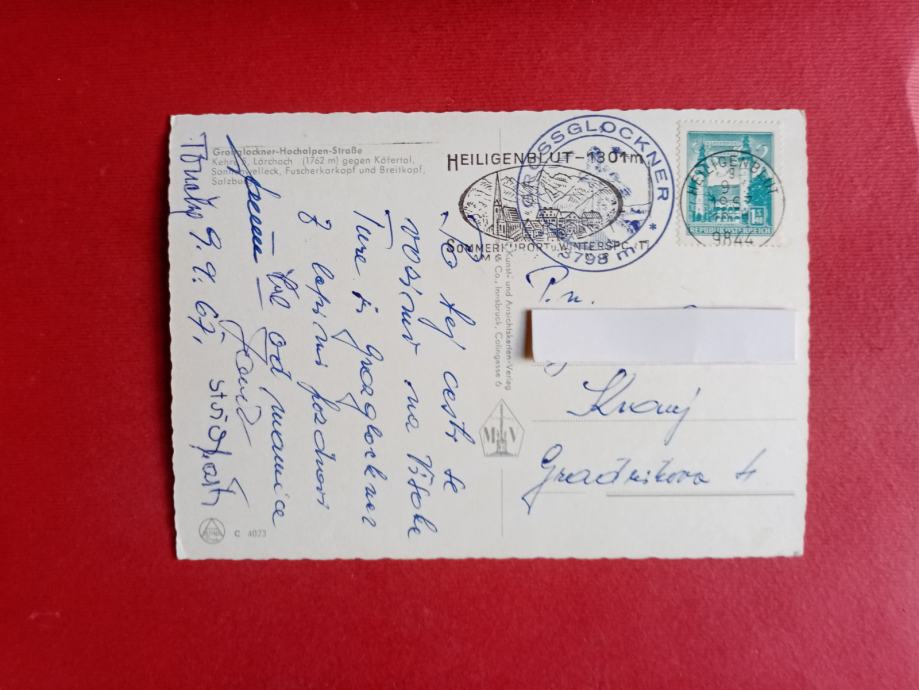 Großglockner-Hochalpen-Straße
Kehre 5, Lärchach (1762 m) gegen Käfertal,
Sonnenwelleck, Fuscherkarkopf und Breitkopf,
Salzburg
HEILIGENBLUT–1301m
SOMMERKURORT u. WINTERSPORT
GROSSGLOCKNER
3798 m
HEILIGENBLUT
9844
REPUBLIK ÖSTERREICH
Kunst- und Ansichtskarten-Verlag
& Co., Innsbruck, Collingasse 6
M V
C 4073
Po tej cesti se
vozimo na Visoke
Ture in Grosglockner
Z lepimi pozdravi
od mamice
9. 9. 67.
P. n.
Kranj
Gradnikova 4